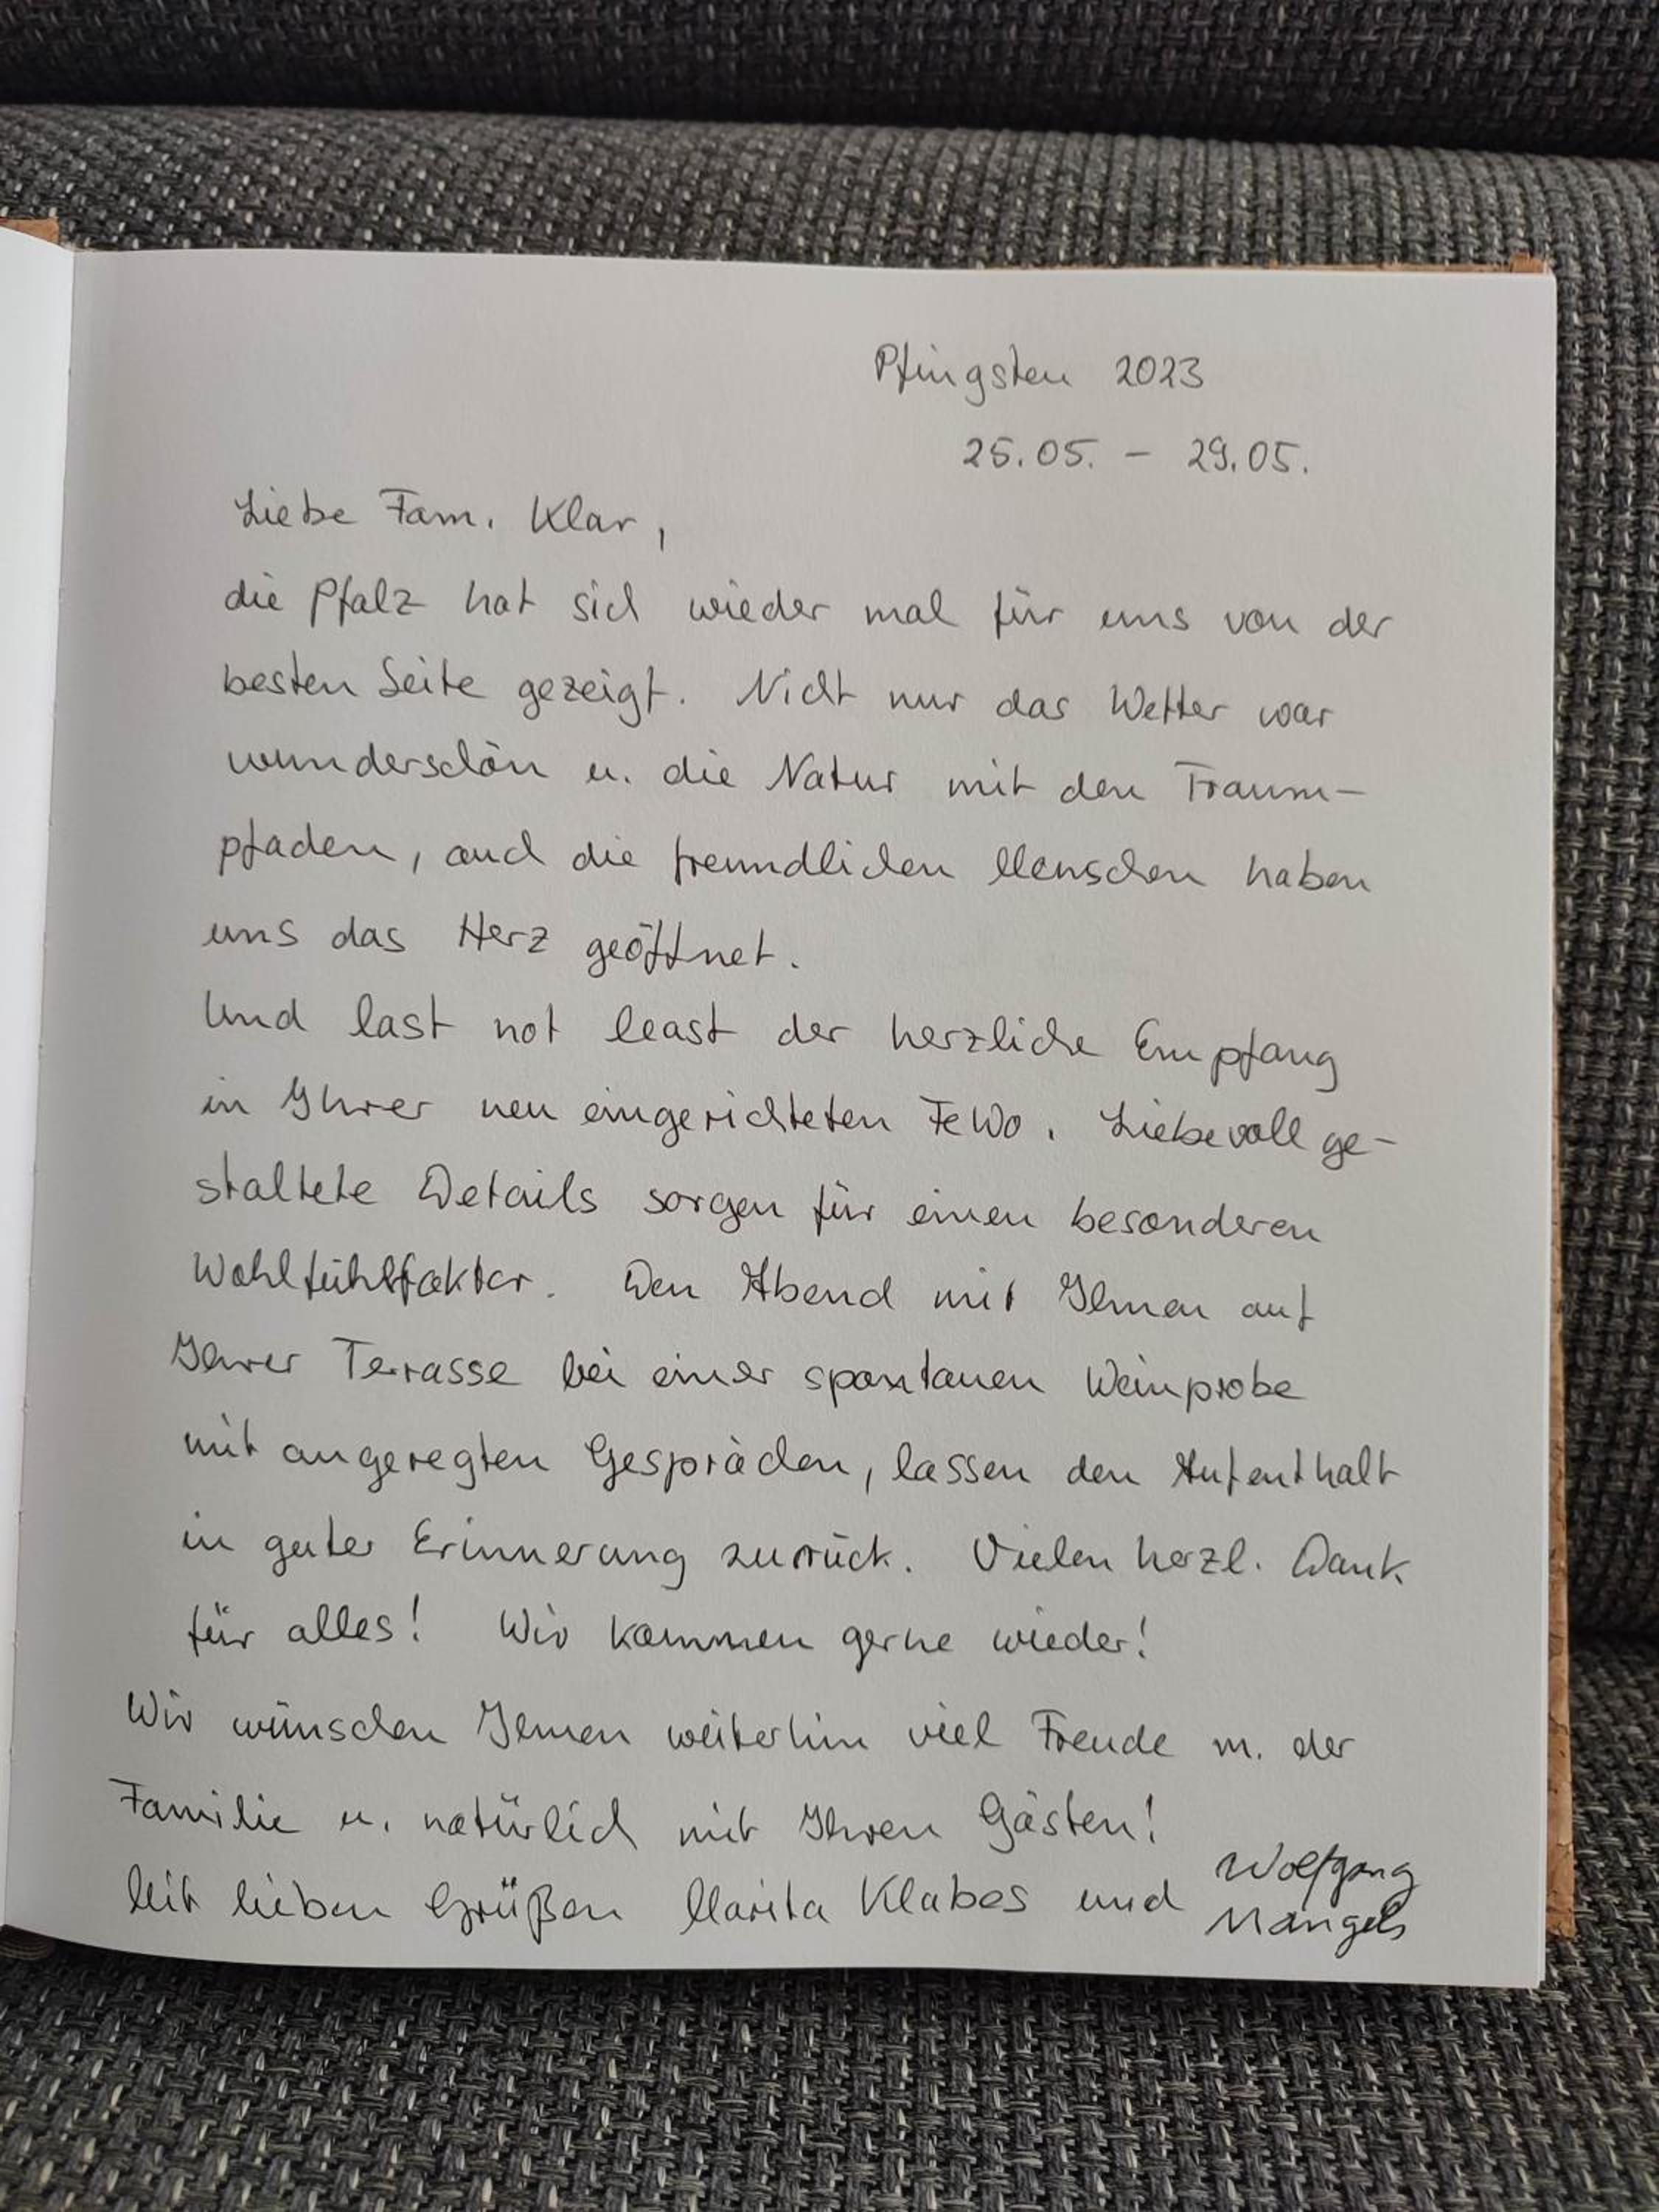 Pfingsten 2023
25.05. – 29.05.
Liebe Fam. Klar,
die Pfalz hat sich wieder mal für uns von der
besten Seite gezeigt. Nicht nur das Wetter war
wunderschön u. die Natur mit den Traum-
pfaden, auch die freundlichen Menschen haben
uns das Herz geöffnet.
Und last not least der herzliche Empfang
in Ihrer neu eingerichteten FeWo. Liebevoll ge-
staltete Details sorgen für einen besonderen
Wohlfühlfaktor. Den Abend mit Ihnen auf
Ihrer Terrasse bei einer spontanen Weinprobe
mit angeregten Gesprächen, lassen den Aufenthalt
in guter Erinnerung zurück. Vielen herzl. Dank
für alles! Wir kommen gerne wieder!
Wir wünschen Ihnen weiterhin viel Freude m. der
Familie u. natürlich mit Ihren Gästen!
Mit lieben Grüßen Marita Klabes und Wolfgang
Mangels